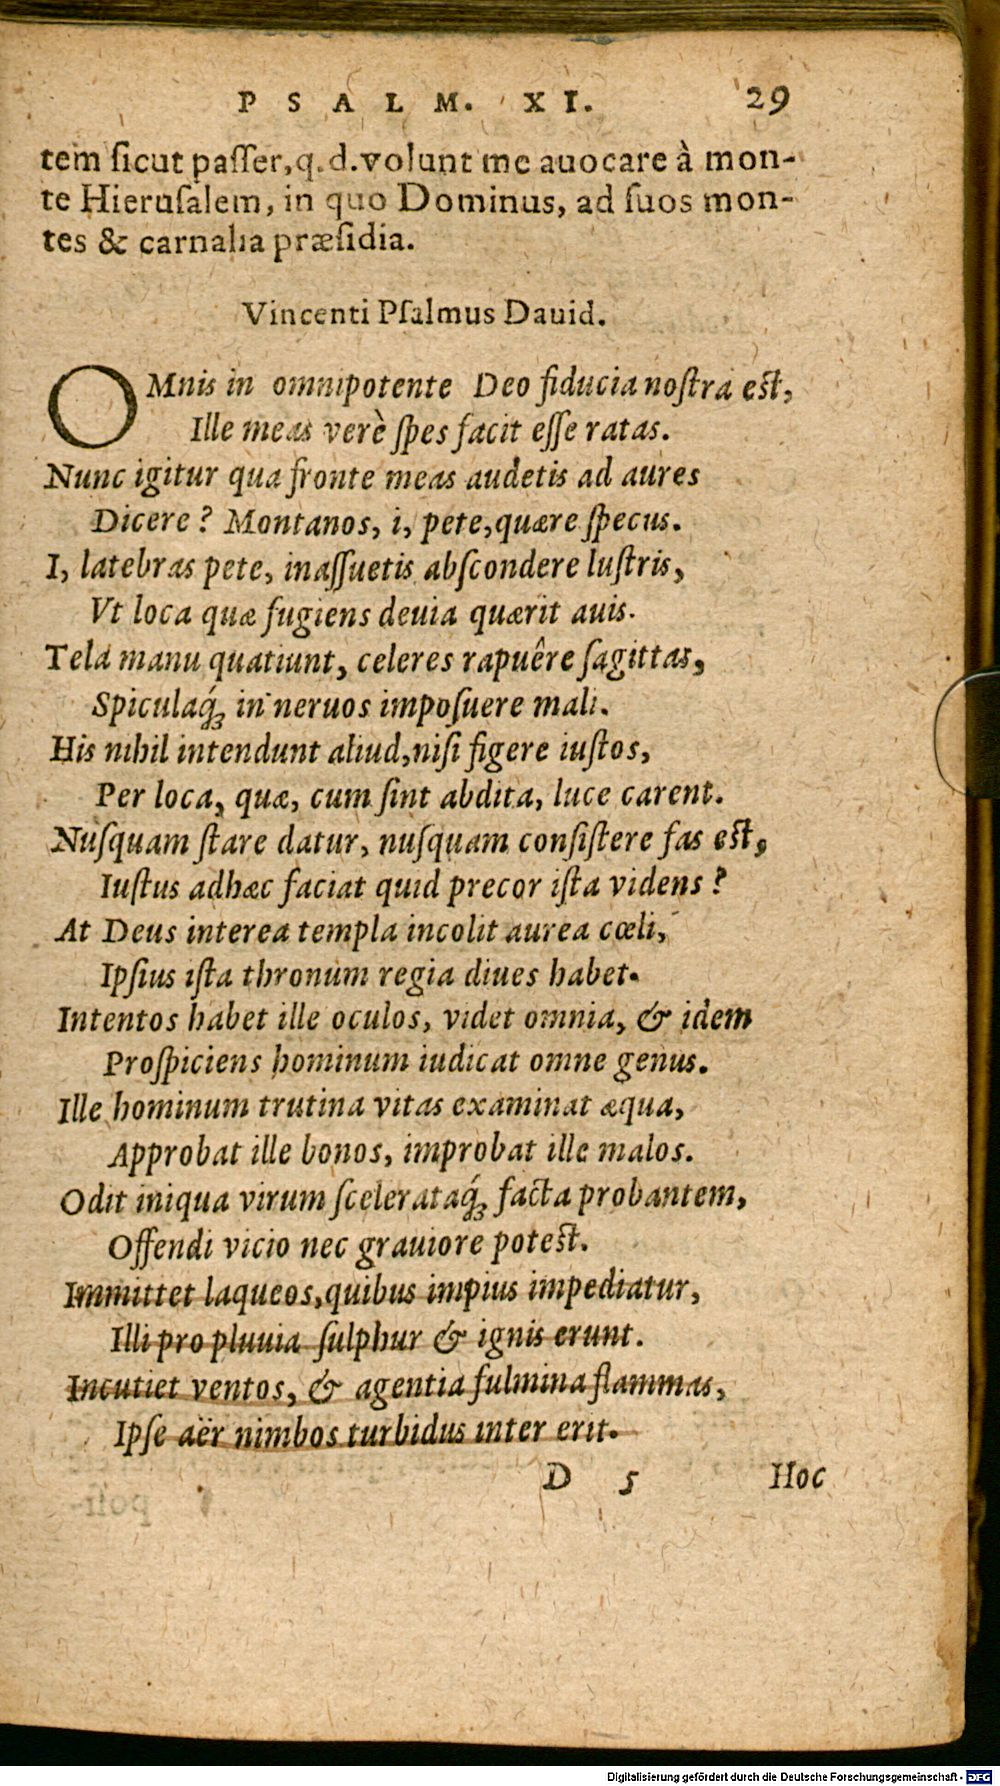 PSALM. XI. 29
tem ſicut paſſer, q. d. volunt me auocare à mon-
te Hieruſalem, in quo Dominus, ad ſuos mon-
tes & carnalia præſidia.
Vincenti Pſalmus Dauid.
OMnis in omnipotente Deo fiducia noſtra eſt,
Ille meas verè ſpes facit eſſe ratas.
Nunc igitur qua fronte meas audetis ad aures
Dicere? Montanos, i, pete, quære ſpecus.
I, latebras pete, inaſſuetis abſcondere luſtris,
Vt loca quæ fugiens deuia quærit auis.
Tela manu quatiunt, celeres rapuêre ſagittas,
Spiculaq́; in neruos impoſuere mali.
His nihil intendunt aliud, niſi figere iuſtos,
Per loca, quæ, cum ſint abdita, luce carent.
Nuſquam ſtare datur, nuſquam conſiſtere fas eſt,
Iuſtus adhæc faciat quid precor iſta videns?
At Deus interea templa incolit aurea cœli,
Ipſius iſta thronum regia diues habet.
Intentos habet ille oculos, videt omnia, & idem
Proſpiciens hominum iudicat omne genus.
Ille hominum trutina vitas examinat æqua,
Approbat ille bonos, improbat ille malos.
Odit iniqua virum ſcelerataq́; facta probantem,
Offendi vicio nec grauiore poteſt.
Immittet laqueos, quibus impius impediatur,
Illi pro pluuia ſulphur & ignis erunt.
Incutiet ventos, & agentia fulmina flammas,
Ipſe aër nimbos turbidus inter erit.
D 5 Hoc
Digitalisierung gefördert durch die Deutsche Forschungsgemeinschaft - DFG